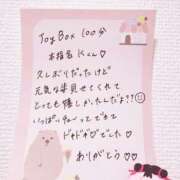 Toy Box 100分
本指名 Kくん♡
久しぶりだったけど
元気な姿見せてくれて
とっても嬉しかったんだよ??
いっぱい
ドキドキでした♡
ありがとう♡♡